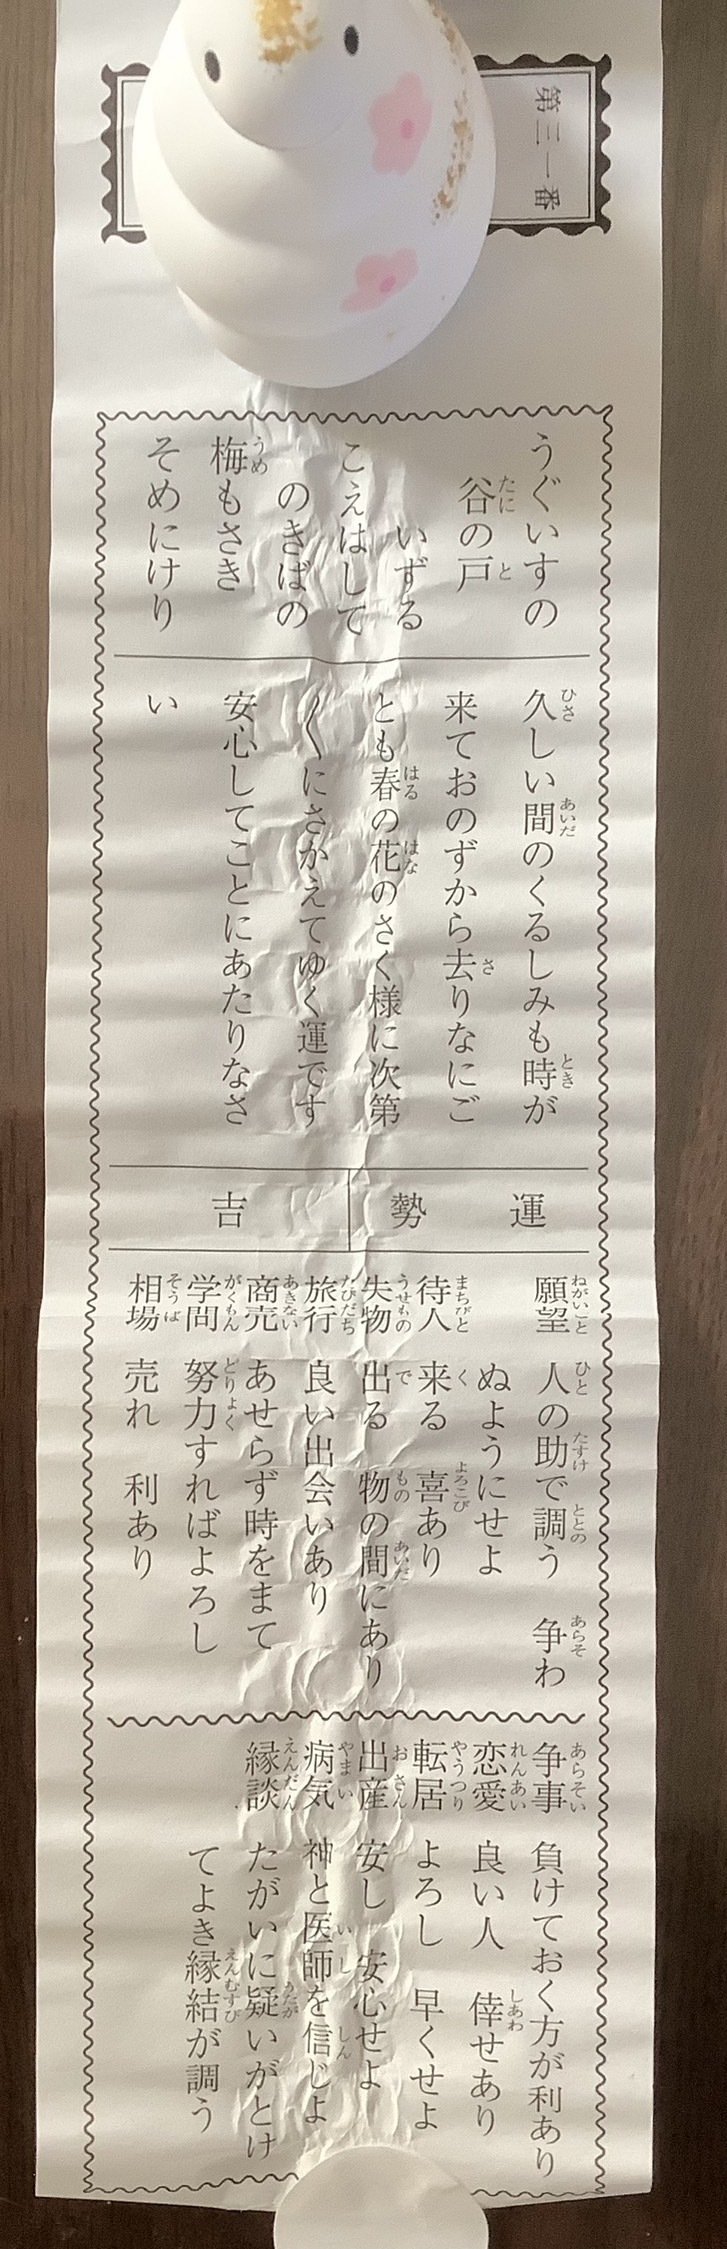 第三一番
うぐいすの
谷の戸
いずる
こえはして
のきばの
梅もさき
そめにけり
久しい間のくるしみも時が
来ておのずから去りなにご
とも春の花のさく様に次第
〱にさかえてゆく運です
安心してことにあたりなさ
い
運勢
吉
願望 人の助で調う 争わ
ぬようにせよ
待人 来る 喜あり
失物 出る 物の間にあり
旅行 良い出会いあり
商売 あせらず時をまて
学問 努力すればよろし
相場 売れ 利あり
争事 負けておく方が利あり
恋愛 良い人 倖せあり
転居 よろし 早くせよ
出産 安し 安心せよ
病気 神と医師を信じよ
縁談 たがいに疑いがとけ
てよき縁結が調う